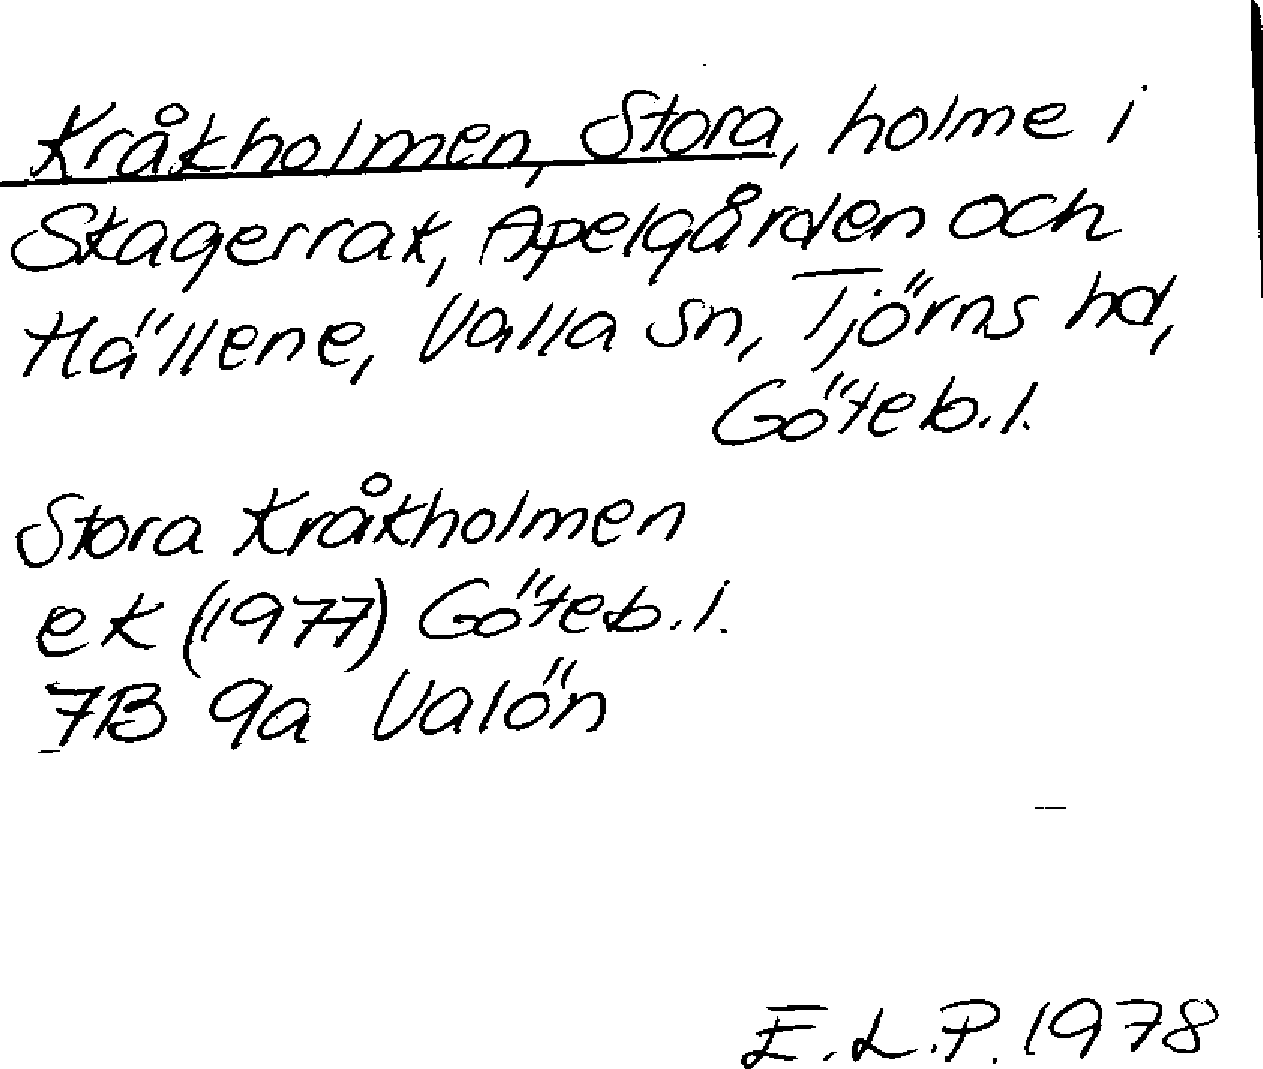 Kråkholmen, Stora, holme i
Skagerrak, Apelgården och
Hällene, Valla sn, Tjörns hd,
Göteb. l.
Stora Kråkholmen
ek (1977) Göteb. l.
7B 9a Valön
E.L.P. 1978